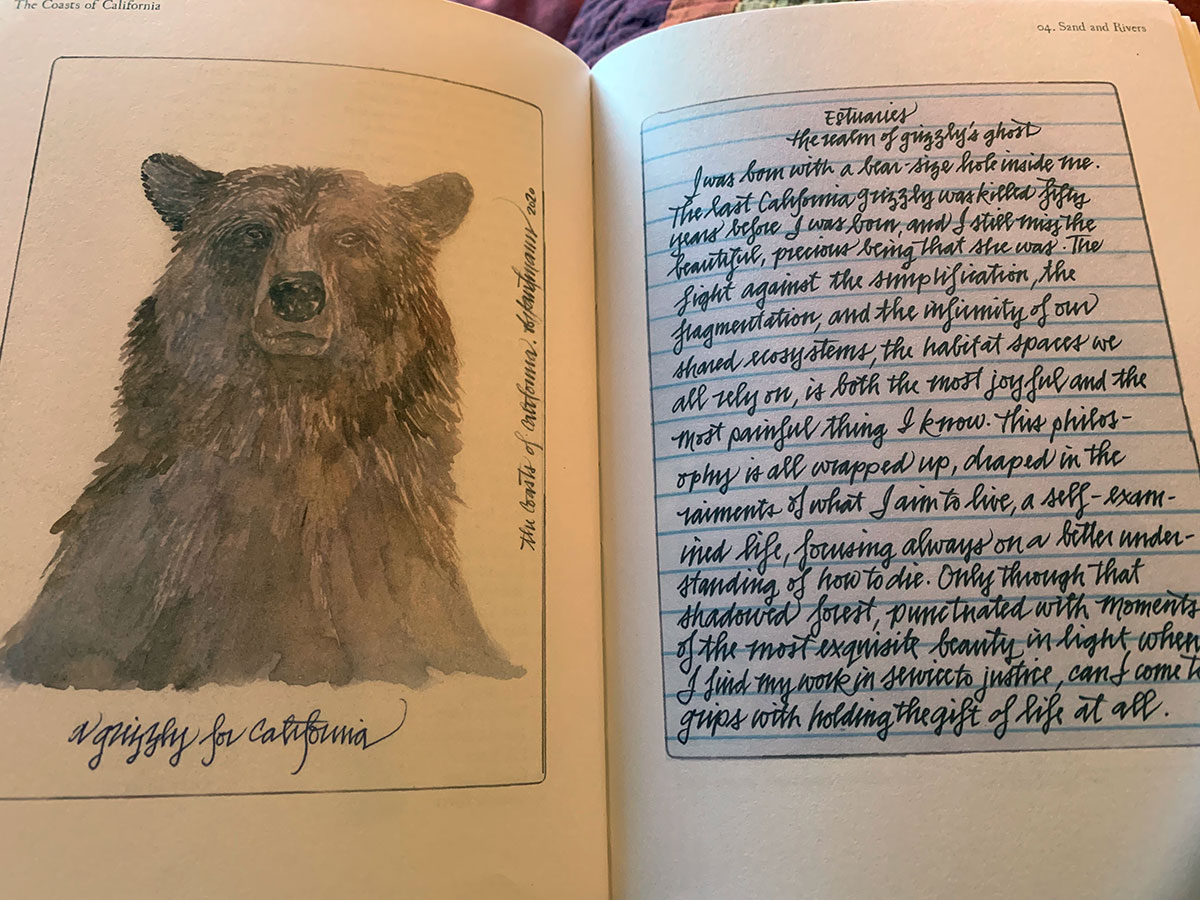 The Coasts of California
the coasts of california. obikaufmann 2020
a grizzly for California
04. Sand and Rivers
Estuaries
the realm of grizzly's ghost
I was born with a bear-size hole inside me.
The last California grizzly was killed fifty
years before I was born, and I still miss the
beautiful, precious being that she was. The
fight against the simplification, the
fragmentation, and the infirmity of our
shared ecosystems, the habitat spaces we
all rely on, is both the most joyful and the
most painful thing I know. This philos-
ophy is all wrapped up, draped in the
raiments of what I aim to live, a self-exam-
ined life, focusing always on a better under-
standing of how to die. Only through that
shadowed forest, punctuated with moments
of the most exquisite beauty in light, when
I find my work in service to justice, can I come to
grips with holding the gift of life at all.